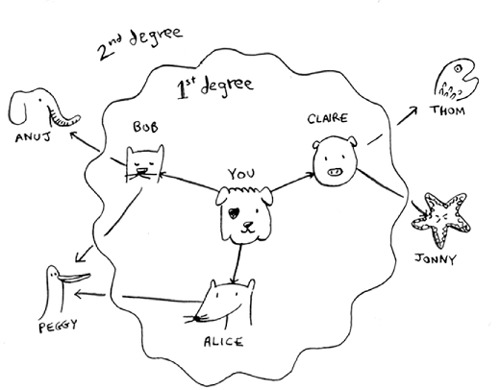 2nd degree
1st degree
ANUJ
BOB
YOU
CLAIRE
THOM
JONNY
PEGGY
ALICE